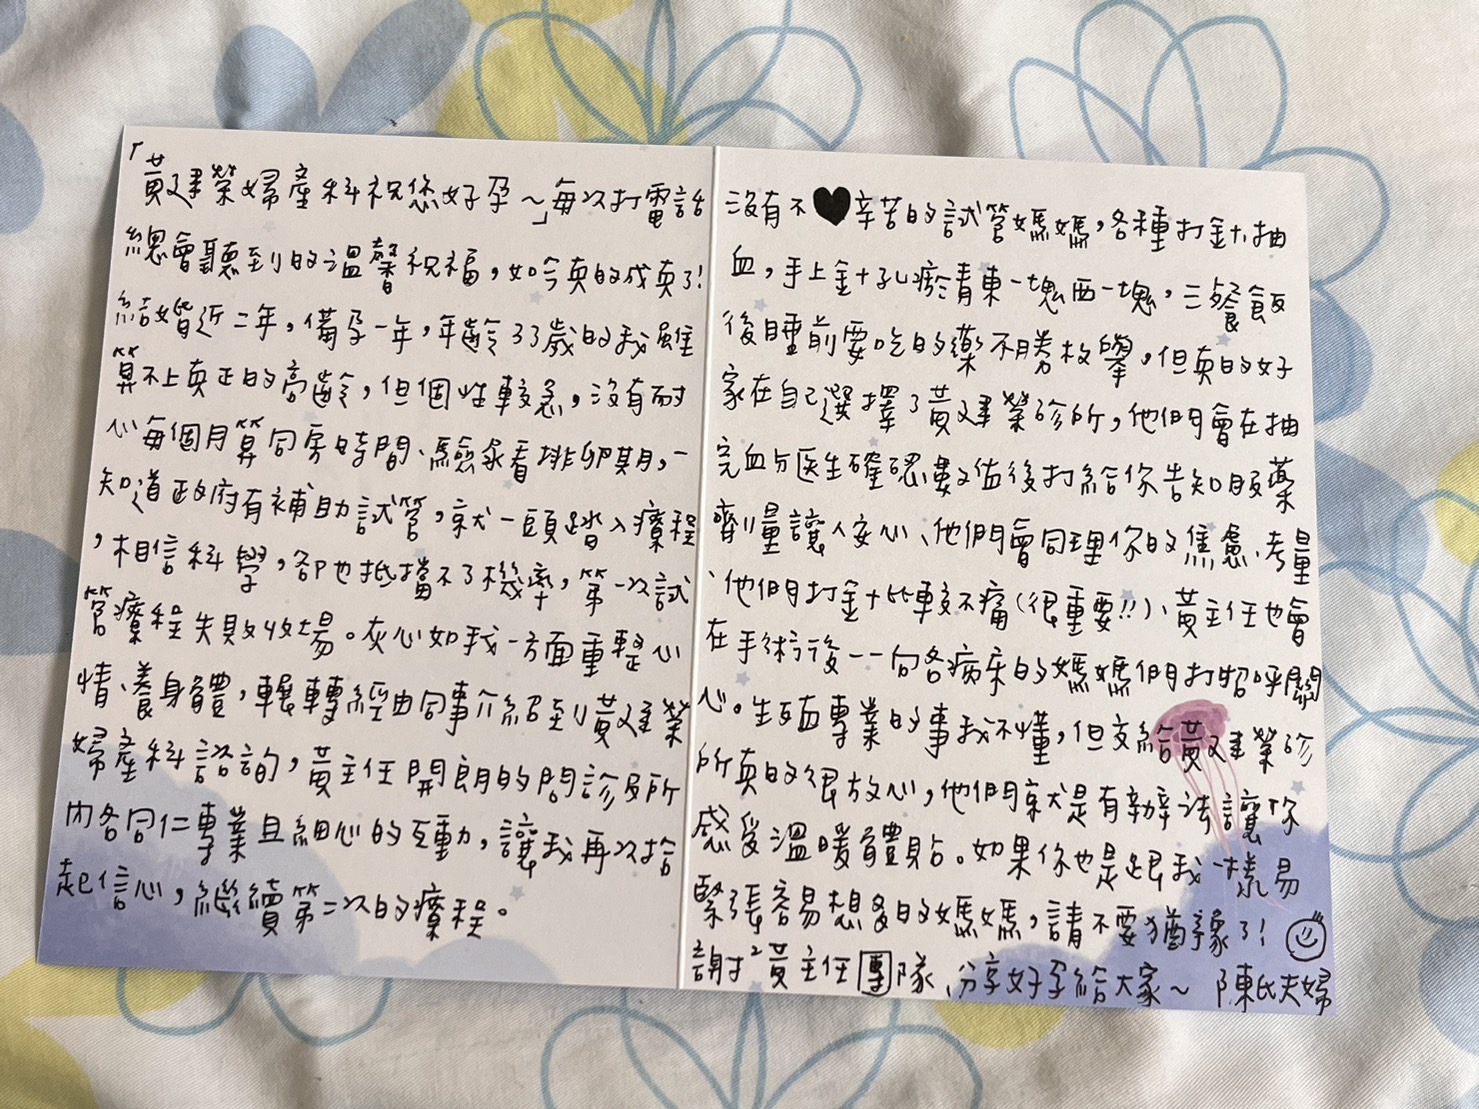 「黃建榮婦產科祝您好孕～」每次打電話
總會聽到的溫馨祝福，如今真的成真了!
結婚近二年，備孕一年，年齡33歲的我雖
算不上真正的高齡，但個性較急，沒有耐
心每個月算同房時間、驗尿看排卵期，一
知道政府有補助試管，就一頭踏入療程
，相信科學，卻也抵擋不了機率，第一次試
管療程失敗收場。灰心如我一方面重整心
情、養身體，輾轉經由同事介紹到黃建榮
婦產科諮詢，黃主任開朗的問診及所
內各同仁專業且細心的互動，讓我再次拾
起信心，繼續第二次的療程。
沒有不♥辛苦的試管媽媽，各種打針、抽
血，手上針孔瘀青東一塊西一塊，三餐飯
後睡前要吃的藥不勝枚舉，但真的好
家在自己選擇了黃建榮診所，他們會在抽
完血与医生確認數值後打給你告知服藥
劑量讓人安心、他們會同理你的焦慮、考量
、他們打針比較不痛(很重要!!)、黃主任也會
在手術後一一向各病床的媽媽們打招呼關
心。生殖專業的事我不懂，但交給黃建榮診
所真的很放心，他們就是有辦法讓你
感受溫暖體貼。如果你也是跟我一樣易
緊張容易想多的媽媽，請不要猶豫了!
謝謝黃主任團隊、分享好孕給大家～ 陳氏夫婦